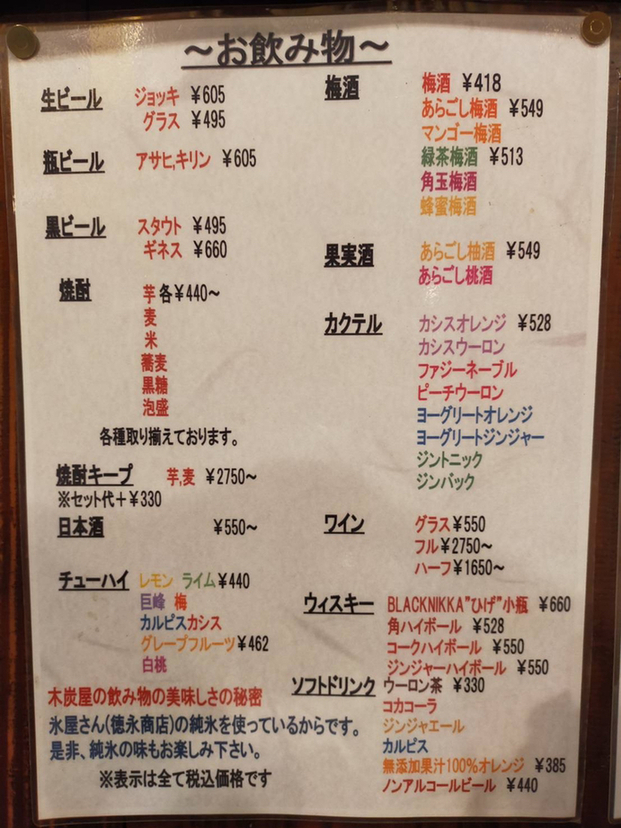 ～お飲み物～
生ビール ジョッキ ￥605
グラス ￥495
瓶ビール アサヒ,キリン ￥605
黒ビール スタウト ￥495
ギネス ￥660
焼酎 芋 各￥440～
麦
米
蕎麦
黒糖
泡盛
各種取り揃えております。
焼酎キープ 芋,麦 ￥2750～
※セット代＋￥330
日本酒 ￥550～
チューハイ レモン ライム￥440
巨峰 梅
カルピスカシス
グレープフルーツ￥462
白桃
木炭屋の飲み物の美味しさの秘密
氷屋さん(徳永商店)の純氷を使っているからです。
是非、純氷の味もお楽しみ下さい。
※表示は全て税込価格です
梅酒 梅酒 ￥418
あらごし梅酒 ￥549
マンゴー梅酒
緑茶梅酒 ￥513
角玉梅酒
蜂蜜梅酒
果実酒 あらごし柚酒 ￥549
あらごし桃酒
カクテル カシスオレンジ ￥528
カシスウーロン
ファジーネーブル
ピーチウーロン
ヨーグリートオレンジ
ヨーグリートジンジャー
ジントニック
ジンバック
ワイン グラス￥550
フル￥2750～
ハーフ￥1650～
ウィスキー BLACKNIKKA”ひげ”小瓶 ￥660
角ハイボール ￥528
コークハイボール ￥550
ジンジャーハイボール ￥550
ソフトドリンク ウーロン茶 ￥330
コカコーラ
ジンジャエール
カルピス
無添加果汁100%オレンジ ￥385
ノンアルコールビール ￥440